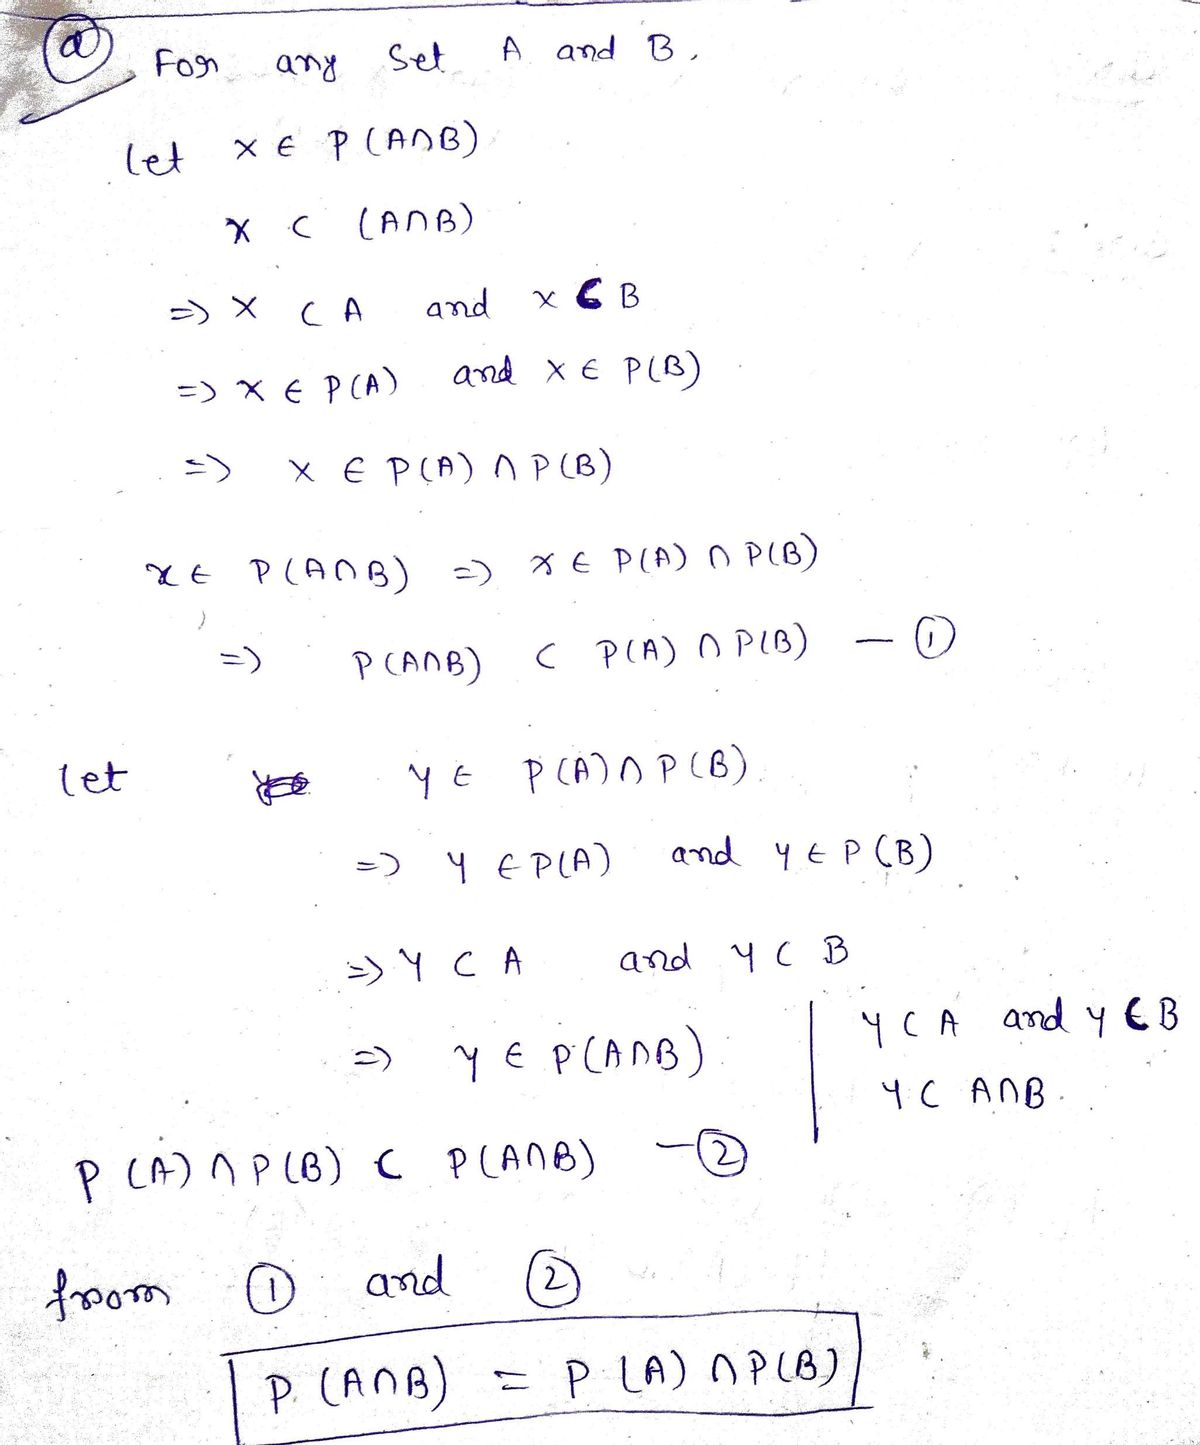 (a) For any Set A and B.
let x ∈ P(A∩B)
x ⊂ (A∩B)
=> x ⊂ A and x ⊂ B
=> x ∈ P(A) and x ∈ P(B)
=> x ∈ P(A) ∩ P(B)
x ∈ P(A∩B) => x ∈ P(A) ∩ P(B)
=> P(A∩B) ⊂ P(A) ∩ P(B) — ①
let y ∈ P(A) ∩ P(B)
=> y ∈ P(A) and y ∈ P(B)
=> y ⊂ A and y ⊂ B
=> y ∈ P(A∩B)
y ⊂ A and y ⊂ B
y ⊂ A∩B.
P(A) ∩ P(B) ⊂ P(A∩B) — ②
from ① and ②
P(A∩B) = P(A) ∩ P(B)